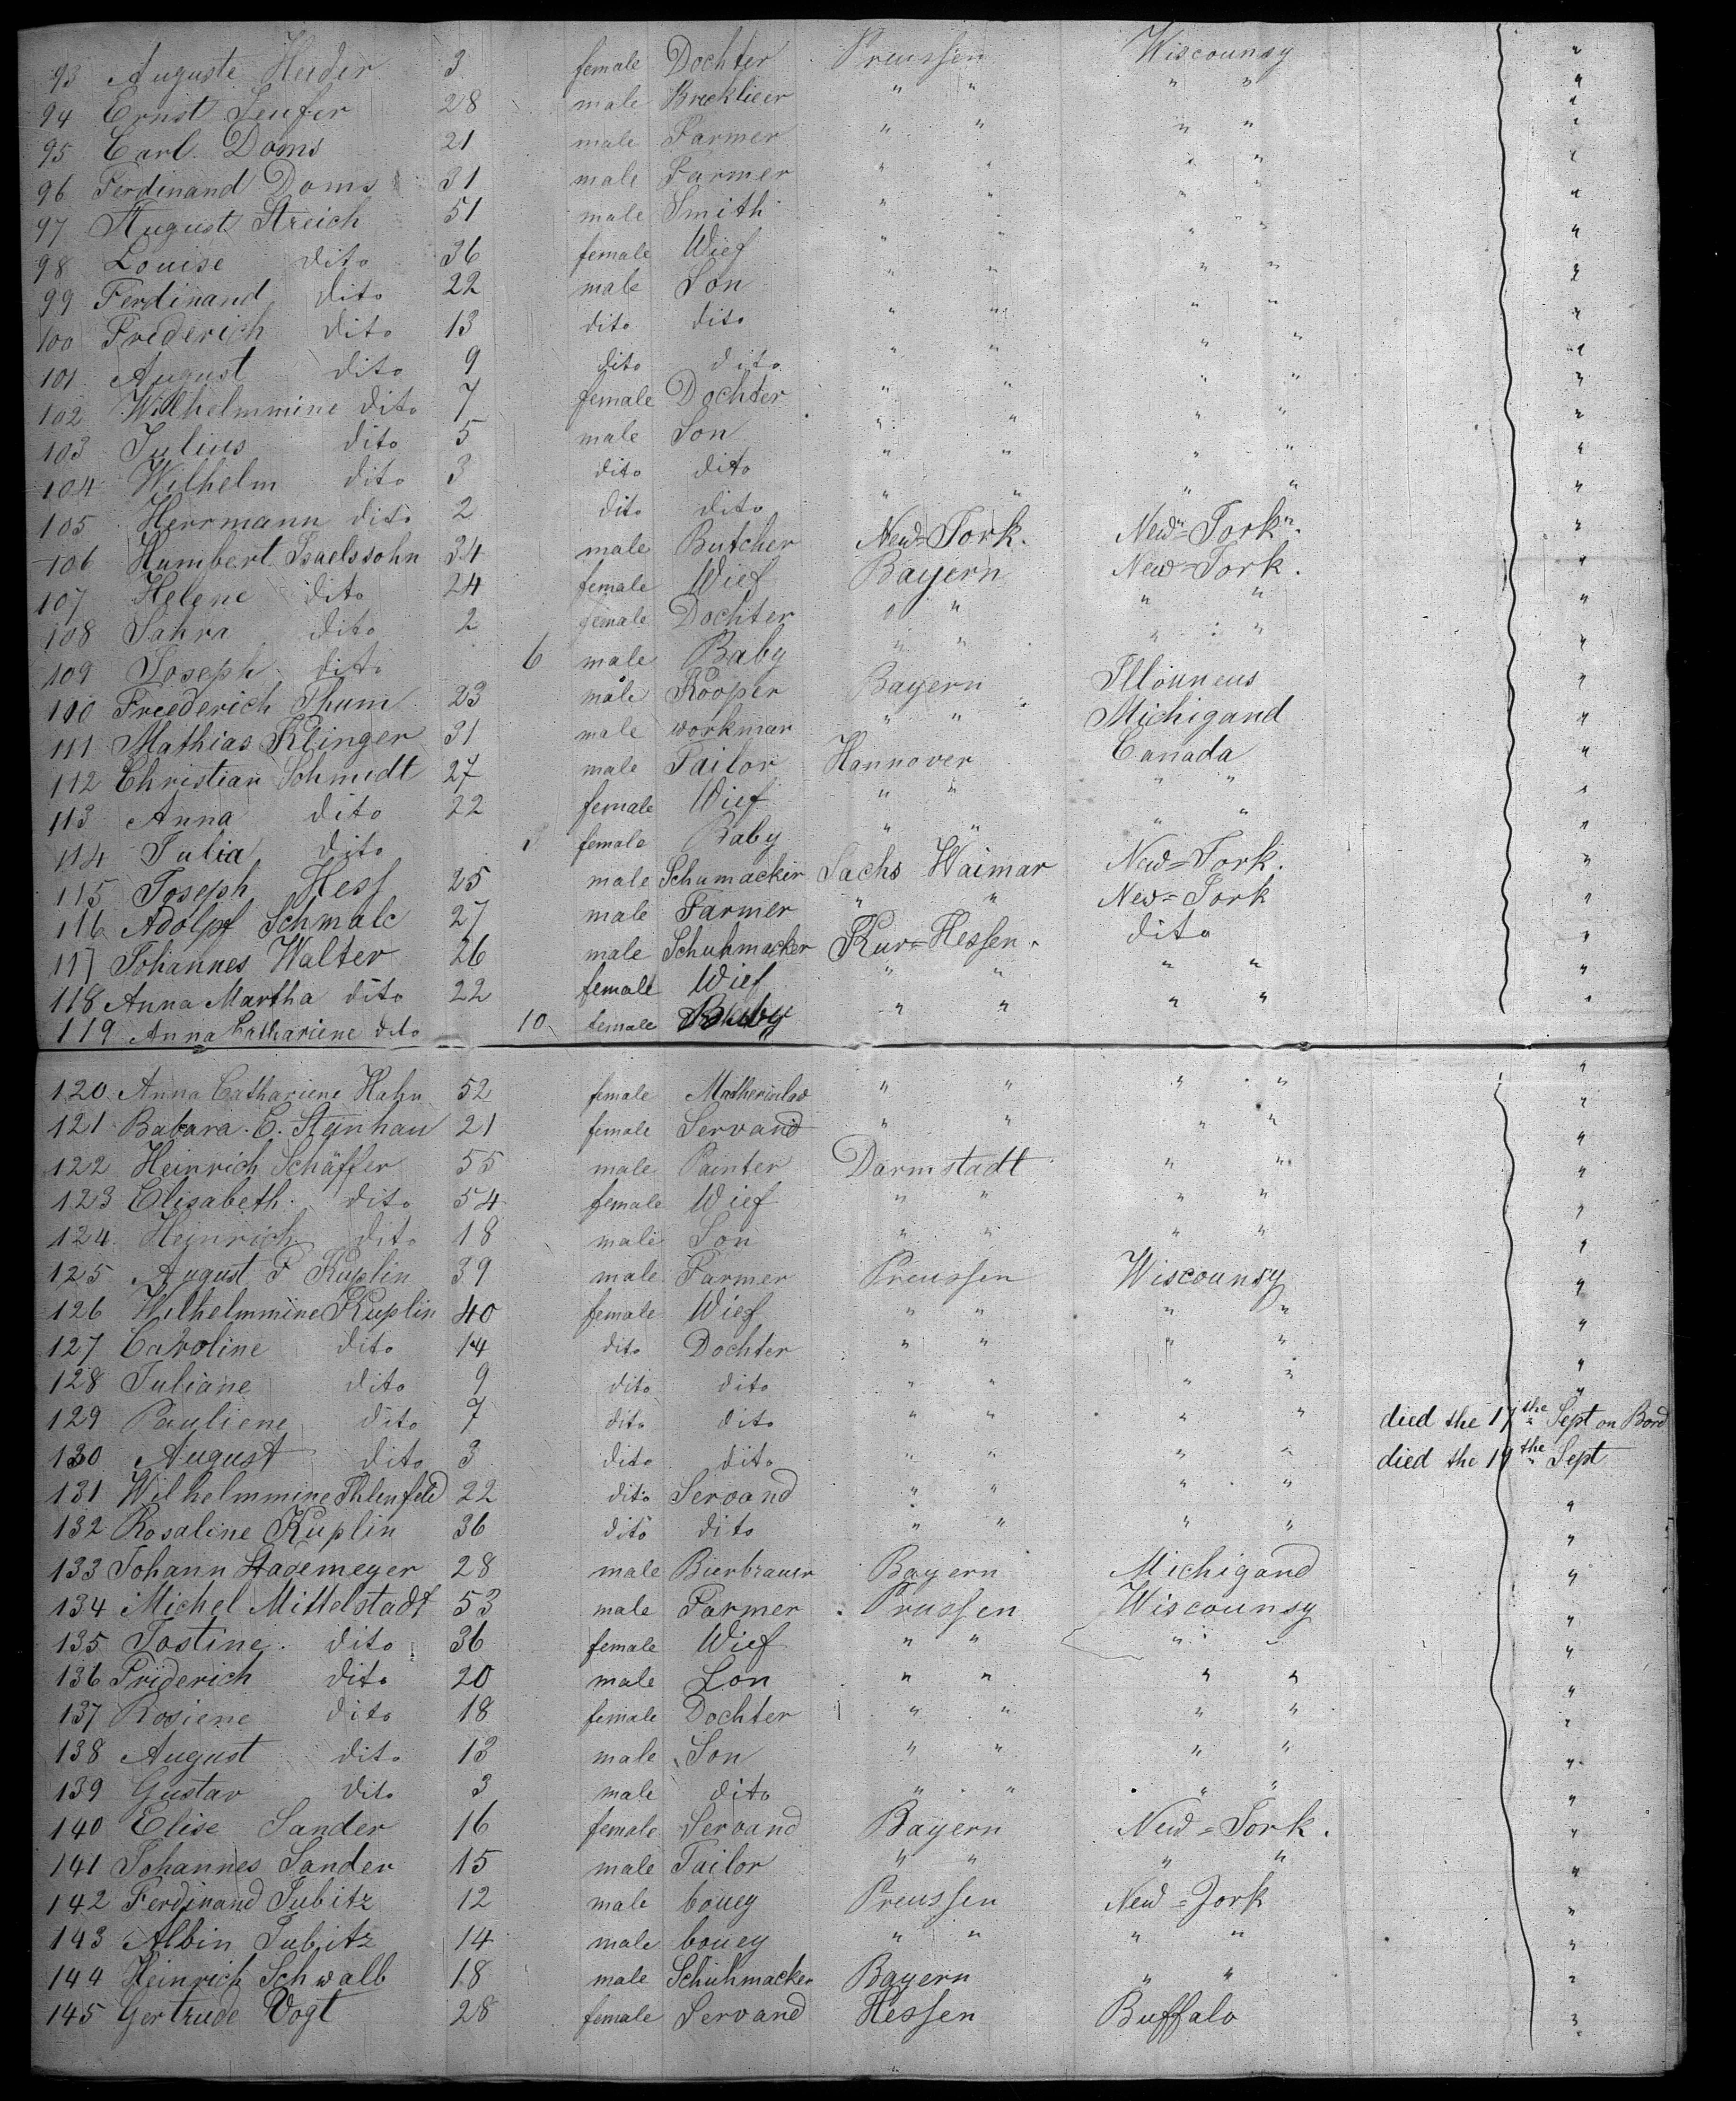 93 Auguste Heider 3 female Dochter Preussen Wiscounsy "
94 Ernst Seufer 28 male Bricklieer " " " " "
95 Carl Doms 21 male Farmer " " " " "
96 Ferdinand Doms 31 male Farmer " " " " "
97 August Streich 51 male Smith " " " " "
98 Louise dito 36 female Wief " " " " "
99 Ferdinand dito 22 male Son " " " " "
100 Frederich dito 13 dito dito " " " " "
101 August dito 9 dito dito " " " " "
102 Wilhelmmine dito 7 female Dochter " " " " "
103 Julius dito 5 male Son " " " " "
104 Wilhelm dito 3 dito dito " " " " "
105 Herrmann dito 2 dito dito " " " " "
106 Humbert Isaelssohn 34 male Butcher New=York. New=York. "
107 Helene dito 24 female Wief Bayern New=York. "
108 Sahra dito 2 female Dochter " " " " "
109 Joseph dito 6 male Baby " " " " "
110 Friederich Thum 23 male Kooper Bayern Illouneus "
111 Mathias Klinger 31 male workman " " Michigand "
112 Christian Schmidt 27 male Tailor Hannover Canada "
113 Anna dito 22 female Wief " " " " "
114 Julia dito female Baby " " " " "
115 Joseph Hess 25 male Schumacker Sachs Waimar New=York. "
116 Adolpf Schmale 27 male Farmer " " New=York "
117 Johannes Walter 26 male Schuhmacker Kur=Hessen. dito "
118 Anna Martha dito 22 female Wief " " " " "
119 Anna Cathariene dito 10 female Baby " " " " "
120 Anna Cathariene Hahn 52 female Motherinlaw " " " " "
121 Babara. C. Steinhau 21 female Servand " " " " "
122 Heinrich Schäffer 55 male Painter Darmstadt " " "
123 Elisabeth dito 54 female Wief " " " " "
124 Heinrich dito 18 male Son " " " " "
125 August F Kuplin 39 male Farmer Preussen Wiscounsy "
126 Wilhelmmine Kuplin 40 female Wief " " " " "
127 Caroline dito 14 dito Dochter " " " " "
128 Juliane dito 9 dito dito " " " " "
129 Pauliene dito 7 dito dito " " " " died the 17the Sept on Bord
130 August dito 3 dito dito " " " " died the 19the Sept
131 Wilhelmmine Ihlenfeld 22 dito Servand " " " " "
132 Rosaline Kuplin 36 dito dito " " " " "
133 Johann Stagemeyer 28 male Bierbrauer Bayern Michigand "
134 Michel Mittelstadt 53 male Farmer Prussen Wiscounsy "
135 Jostine dito 36 female Wief " " " " "
136 Friderich dito 20 male Son " " " " "
137 Rosiene dito 18 female Dochter " " " " "
138 August dito 13 male Son " " " " "
139 Gustav dito 3 male dito " " " " "
140 Elise Sander 16 female Servand Bayern New=York. "
141 Johannes Sander 15 male Tailor " " " " "
142 Ferdinand Jubitz 12 male bouey Preussen New=York "
143 Albin Jubitz 14 male bouey " " " " "
144 Heinrich Schwalb 18 male Schuhmacker Bayern " " "
145 Gertrude Vogt 28 female Servand Hessen Buffalo "